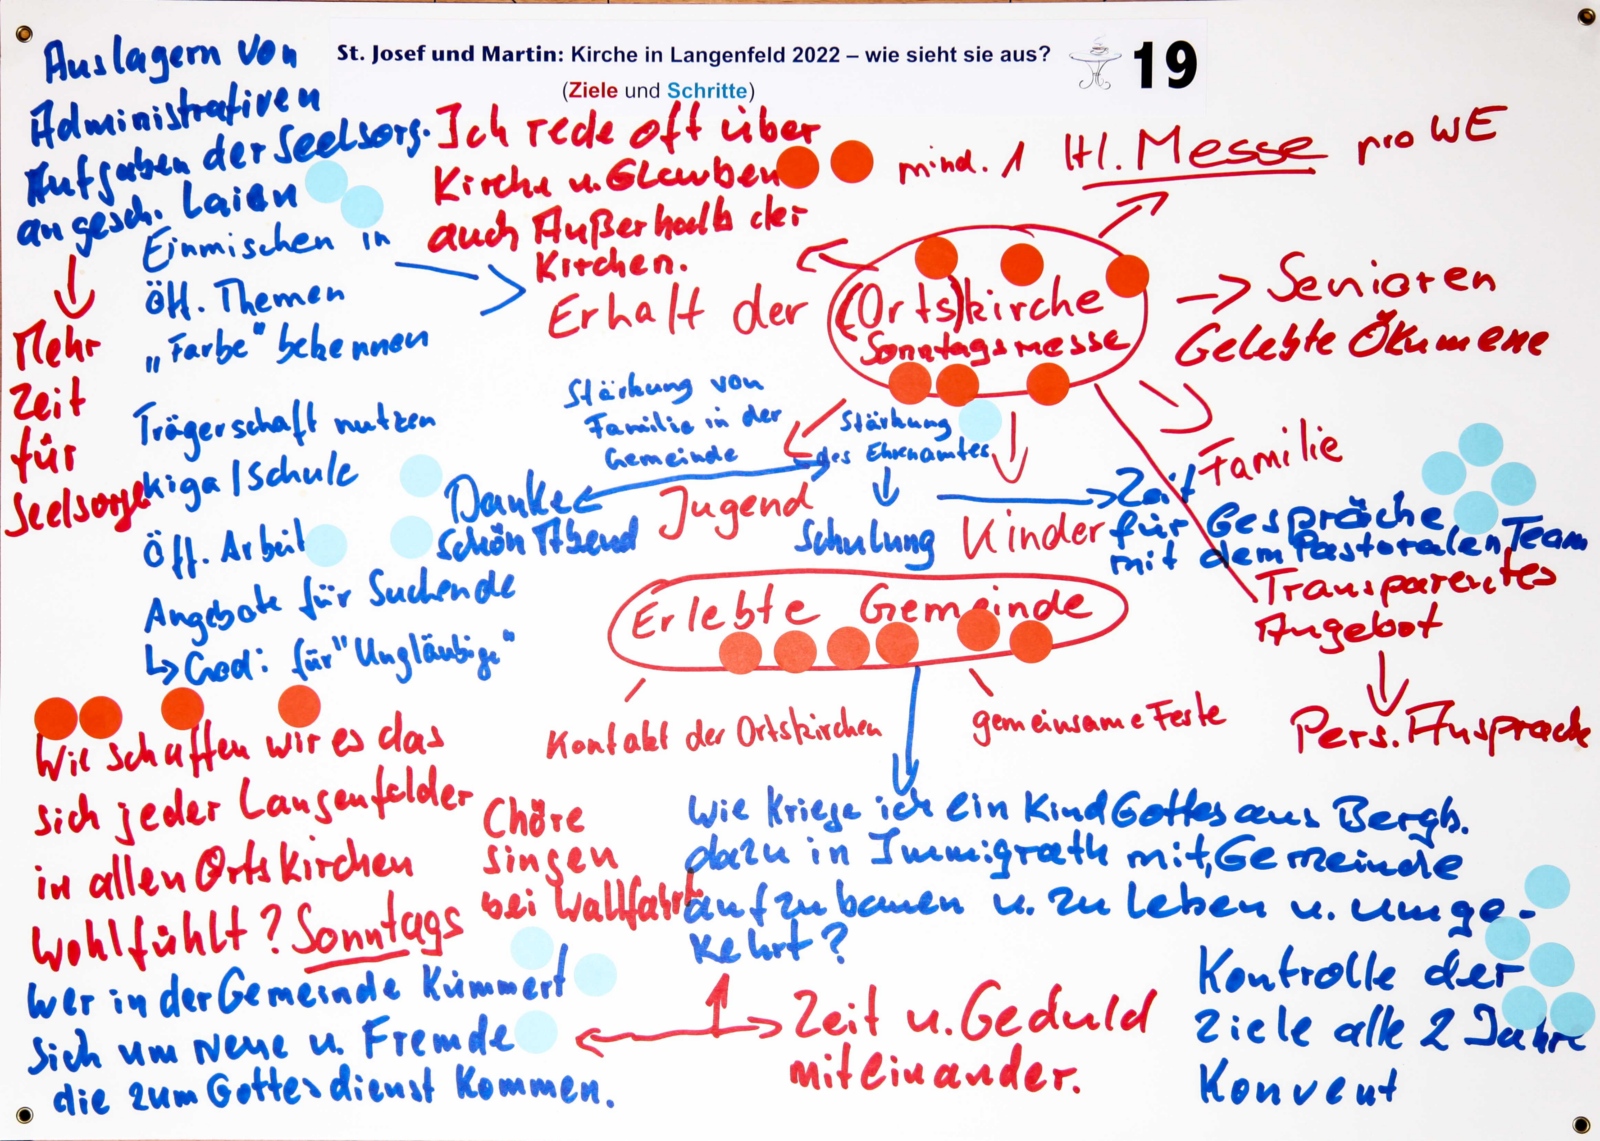 St. Josef und Martin: Kirche in Langenfeld 2022 – wie sieht sie aus?
(Ziele und Schritte)
19
Auslagern von
Administrativen
Aufgaben der Seelsorg.
an gesch. Laien
Mehr
Zeit
für
Seelsorge
Ich rede oft über
Kirche u. Glauben
auch Außerhalb der
Kirchen.
mind. 1 Hl. Messe pro WE
Einmischen in
Öff. Themen
„Farbe" bekennen
Erhalt der (Orts)kirche
Sonntagsmesse
Senioren
Gelebte Ökumene
Trägerschaft nutzen
Kiga / Schule
Öff. Arbeit
Angebote für Suchende
↳ God: für "Ungläubige"
Stärkung von
Familie in der
Gemeinde
Danke
schön Abend
Jugend
Stärkung
des Ehrenamtes
Schulung
Kinder
Familie
Zeit
für Gespräche
mit dem Pastoralen Team
Transparentes
Angebot
Pers. Ansprache
Erlebte Gemeinde
Kontakt der Ortskirchen
gemeinsame Feste
Wie schaffen wir es das
sich jeder Langenfelder
in allen Ortskirchen
wohlfühlt? Sonntags
Chöre
singen
bei Wallfahrt
Wie Kriege ich ein Kind Gottes aus Bergh.
dazu in Immigrath mit, Gemeinde
aufzubauen u. zu leben u. umge-
kehrt?
Wer in der Gemeinde Kümmert
sich um Neue u. Fremde
die zum Gottesdienst kommen.
Zeit u. Geduld
miteinander.
Kontrolle der
Ziele alle 2 Jahre
Konvent